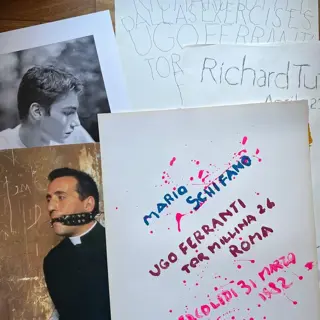 EXERCISES
UGO FERRANTI
TOR
Richard Tu
April
MARIO
SCHIFANO
UGO FERRANTI
TOR MILLINA 26
ROMA
31 MARZO
1982